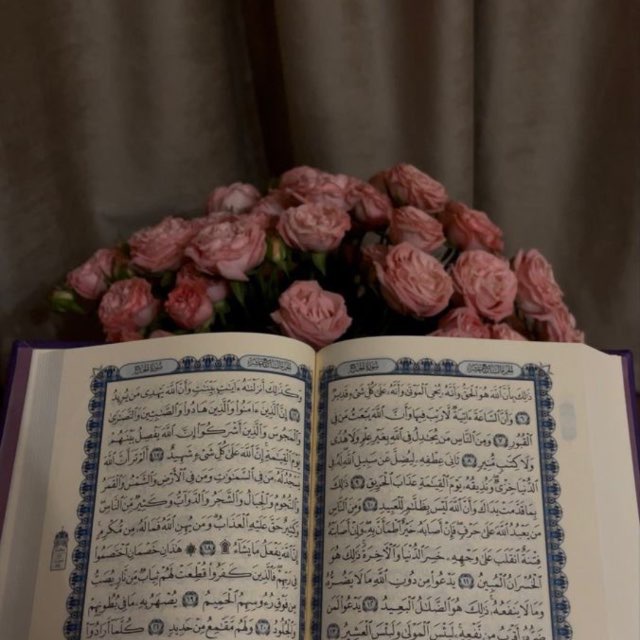 سُورَةُ الحَجِّ
ذَٰلِكَ بِأَنَّ ٱللَّهَ هُوَ ٱلْحَقُّ وَأَنَّهُۥ يُحْىِ ٱلْمَوْتَىٰ وَأَنَّهُۥ عَلَىٰ كُلِّ شَىْءٍ قَدِيرٌ
٦ وَأَنَّ ٱلسَّاعَةَ ءَاتِيَةٌ لَّا رَيْبَ فِيهَا وَأَنَّ ٱللَّهَ يَبْعَثُ مَن فِى
ٱلْقُبُورِ ٧ وَمِنَ ٱلنَّاسِ مَن يُجَٰدِلُ فِى ٱللَّهِ بِغَيْرِ عِلْمٍ وَلَا هُدًى
وَلَا كِتَٰبٍ مُّنِيرٍ ٨ ثَانِىَ عِطْفِهِۦ لِيُضِلَّ عَن سَبِيلِ ٱللَّهِ لَهُۥ فِى
ٱلدُّنْيَا خِزْىٌ وَنُذِيقُهُۥ يَوْمَ ٱلْقِيَٰمَةِ عَذَابَ ٱلْحَرِيقِ ٩ ذَٰلِكَ
بِمَا قَدَّمَتْ يَدَاكَ وَأَنَّ ٱللَّهَ لَيْسَ بِظَلَّٰمٍ لِّلْعَبِيدِ ١٠ وَمِنَ ٱلنَّاسِ
مَن يَعْبُدُ ٱللَّهَ عَلَىٰ حَرْفٍ فَإِنْ أَصَابَهُۥ خَيْرٌ ٱطْمَأَنَّ بِهِۦ وَإِنْ أَصَابَتْهُ
فِتْنَةٌ ٱنقَلَبَ عَلَىٰ وَجْهِهِۦ خَسِرَ ٱلدُّنْيَا وَٱلْءَاخِرَةَ ذَٰلِكَ هُوَ
ٱلْخُسْرَانُ ٱلْمُبِينُ ١١ يَدْعُوا۟ مِن دُونِ ٱللَّهِ مَا لَا يَضُرُّهُۥ
وَمَا لَا يَنفَعُهُۥ ذَٰلِكَ هُوَ ٱلضَّلَٰلُ ٱلْبَعِيدُ ١٢ يَدْعُوا۟ لَمَن
ضَرُّهُۥٓ أَقْرَبُ مِن نَّفْعِهِۦ لَبِئْسَ ٱلْمَوْلَىٰ وَلَبِئْسَ ٱلْعَشِيرُ
سُورَةُ الحَجِّ
وَكَذَٰلِكَ أَنزَلْنَٰهُ ءَايَٰتٍۭ بَيِّنَٰتٍ وَأَنَّ ٱللَّهَ يَهْدِى مَن يُرِيدُ
١٦ إِنَّ ٱلَّذِينَ ءَامَنُوا۟ وَٱلَّذِينَ هَادُوا۟ وَٱلصَّٰبِـِٔينَ وَٱلنَّصَٰرَىٰ
وَٱلْمَجُوسَ وَٱلَّذِينَ أَشْرَكُوٓا۟ إِنَّ ٱللَّهَ يَفْصِلُ بَيْنَهُمْ
يَوْمَ ٱلْقِيَٰمَةِ إِنَّ ٱللَّهَ عَلَىٰ كُلِّ شَىْءٍ شَهِيدٌ ١٧ أَلَمْ تَرَ أَنَّ ٱللَّهَ
يَسْجُدُ لَهُۥ مَن فِى ٱلسَّمَٰوَٰتِ وَمَن فِى ٱلْأَرْضِ وَٱلشَّمْسُ وَٱلْقَمَرُ
وَٱلنُّجُومُ وَٱلْجِبَالُ وَٱلشَّجَرُ وَٱلدَّوَآبُّ وَكَثِيرٌ مِّنَ ٱلنَّاسِ
وَكَثِيرٌ حَقَّ عَلَيْهِ ٱلْعَذَابُ وَمَن يُهِنِ ٱللَّهُ فَمَا لَهُۥ مِن مُّكْرِمٍ
إِنَّ ٱللَّهَ يَفْعَلُ مَا يَشَآءُ ١٨ هَٰذَانِ خَصْمَانِ ٱخْتَصَمُوا۟
فِى رَبِّهِمْ فَٱلَّذِينَ كَفَرُوا۟ قُطِّعَتْ لَهُمْ ثِيَابٌ مِّن نَّارٍ يُصَبُّ
مِن فَوْقِ رُءُوسِهِمُ ٱلْحَمِيمُ ١٩ يُصْهَرُ بِهِۦ مَا فِى بُطُونِهِمْ
وَٱلْجُلُودُ ٢٠ وَلَهُم مَّقَٰمِعُ مِنْ حَدِيدٍ ٢١ كُلَّمَآ أَرَادُوٓا۟